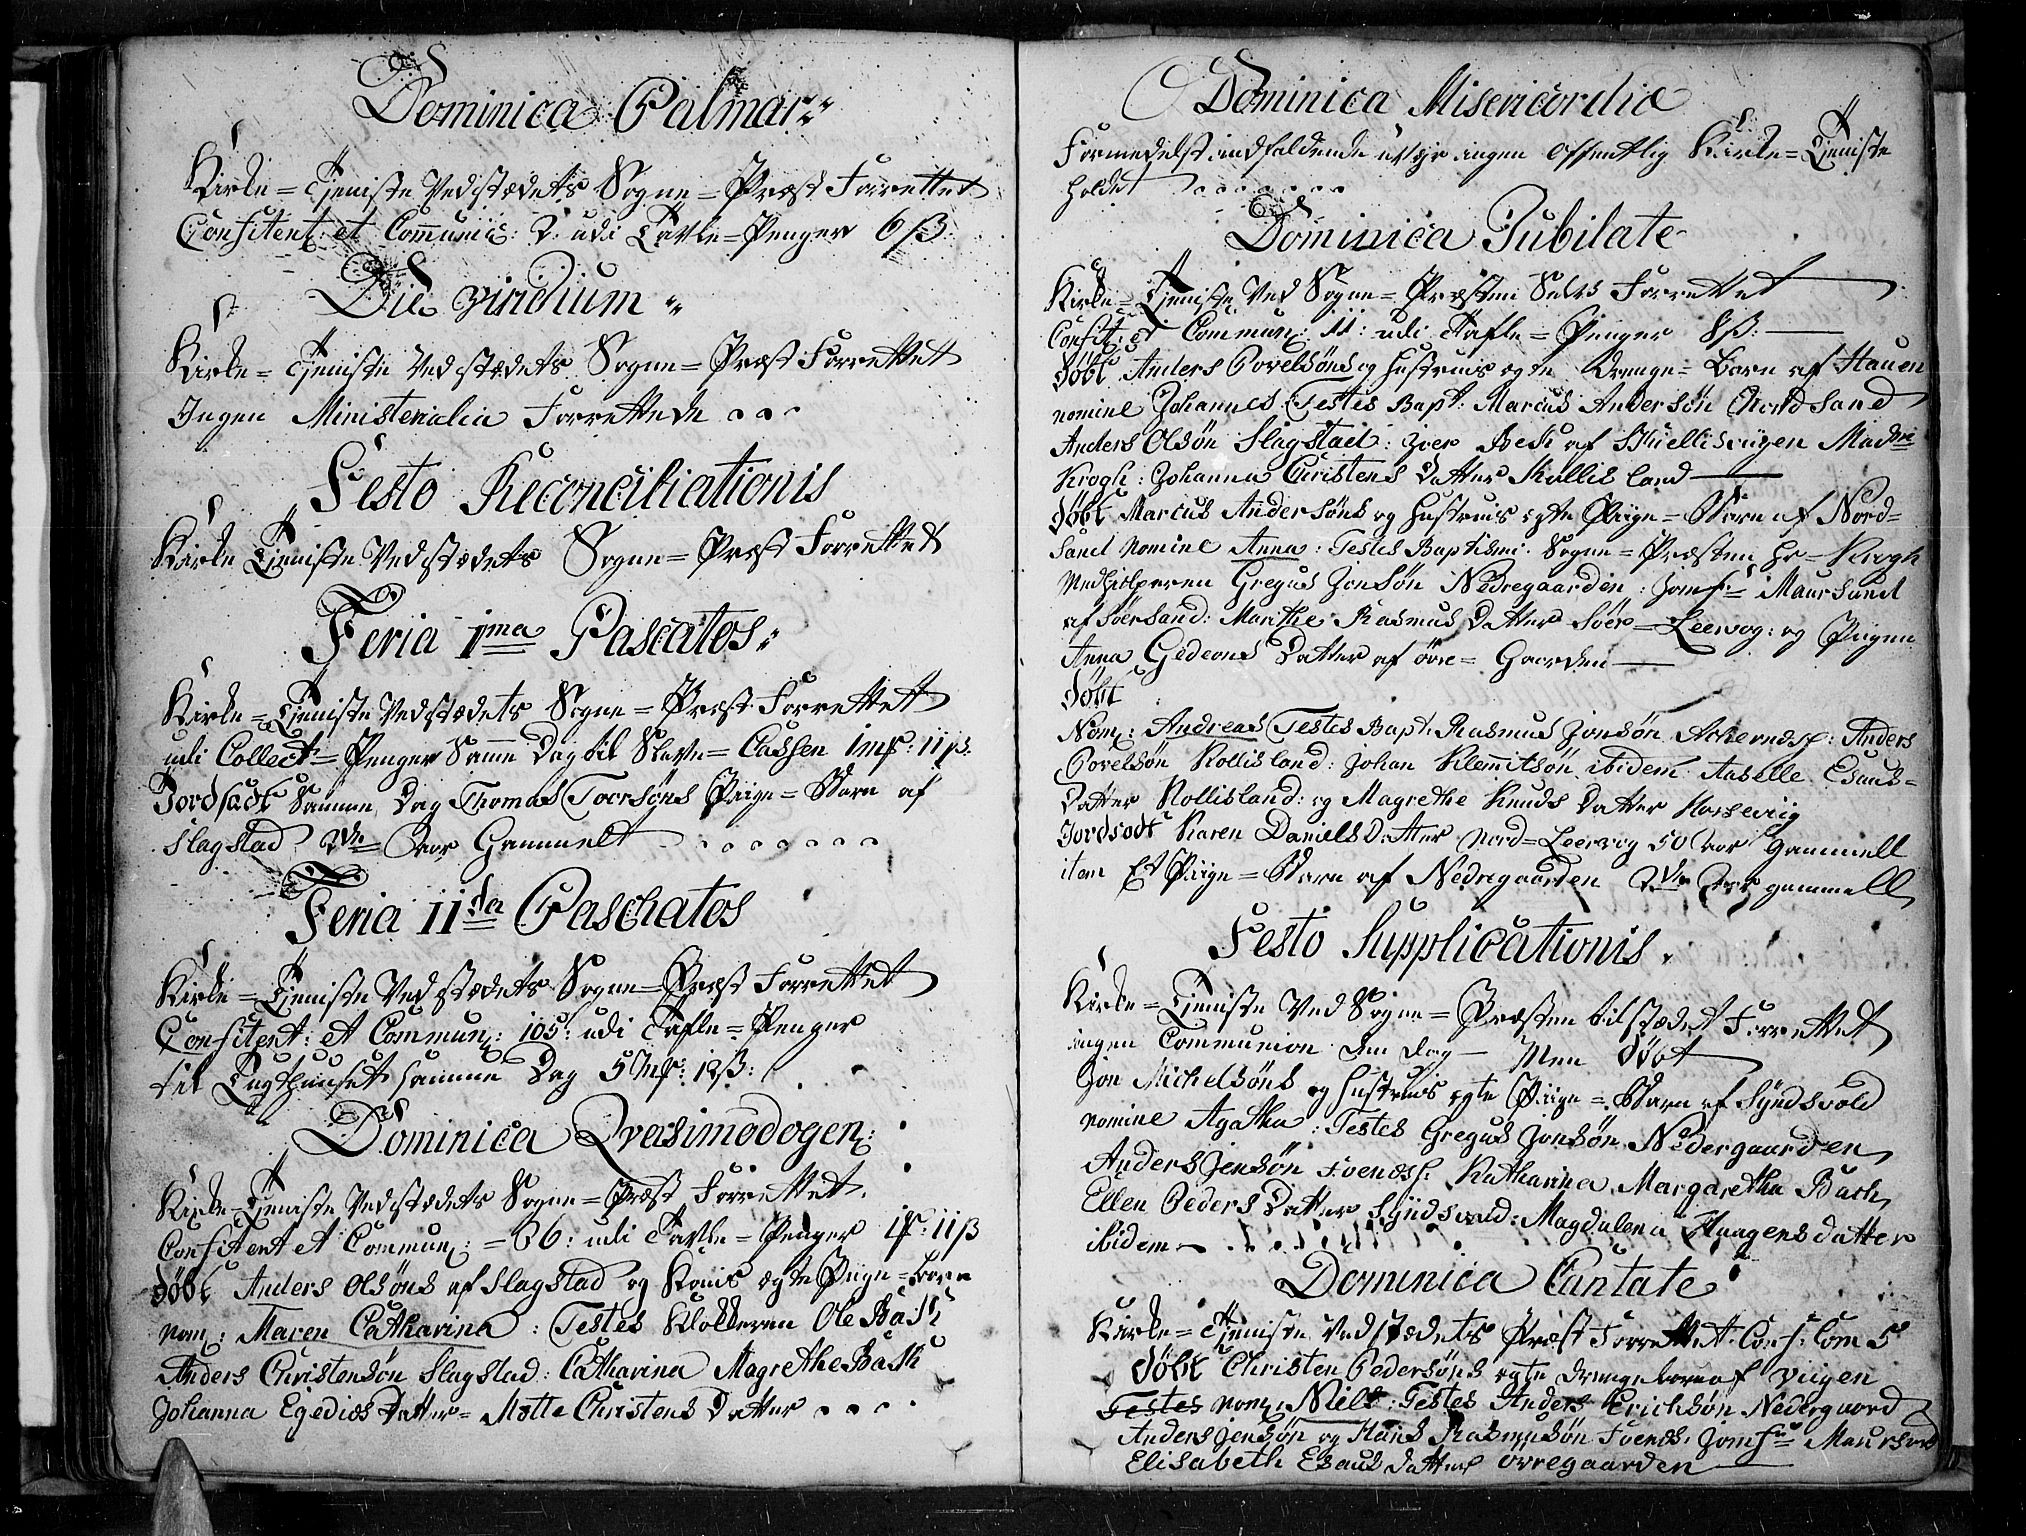 Dominica Palmar:
Kirke=Tjeniste Ved stædets Sogne=Præst Forrettet
Confitent: et Communic: 2: udi Tavle=Penger 6 ß
Die viridium
Kirke=Tjeniste Ved stædets Sogne=Præst Forrettet
Ingen Ministerialia Forrettede
Festo Reconciliationis
Kirke Tjeniste Ved stædets Sogne=Præst Forrettet
Feria 1ma Pascatos
Kirke=Tjeniste Ved stædets Sogne=Præst Forrettet
udi Collect=Penger Samme Dag til Slave=Cassen 1 m: 11 ß
Jordsadt Samme Dag Thomas Toersøns Piige=Barn af
Slagstad Aar Gammelt
Feria IIda Paschatos
Kirke=Tjeniste Ved stædets Sogne=Præst Forrettet
Confitent: et Commun: 105: udi Tafle=Penger
til Tugthuuset samme Dag 5 m: 12 ß:
Dominica Qvasimodogen:
Kirke=Tjeniste Ved stædets Sogne=Præst Forrettet
Confitent et Commun: =36: udi Tavle=Penger 11 ß
døbt Anders Olsøns af Slagstad og Konis ægte Piige=Barn
nom: Maren Catharina: Testes Klokkeren Ole Bask
Anders Christensøn Slagstad: Catharina Magrethe Bask
Johanna Egedius Datter= Mette Christens Datter
Dominica Misericordia
Formedelst indfaldende ingen Offentlig Kirke=Tjeniste
holdet
Dominica Jubilate
Kirke=Tjeniste Ved Sogne=Præsten Selvs Forrettet
Confit: et Commun: 11: udi Tafle=Penger 8 ß:
døbt Anders Povelsøns og Hustrues ægte Drenge=Barn af Hauen
nomine Johannes Testes Bapt: Marcus Andersøn Nordsand
Anders Olsøn Slagstad: Iver af Mad
Krogh: Johanna Christens Datter Kollisland
døbt Marcus Andersøns og Hustrues ægte Piige=Barn af Nord=
Sand nomine Anna: Testes Baptismi: Sogne=Præsten Hr= Krogh
Medhielperen Gregus Jonsøn Nedregaarden: Jomf: Maursund
af Søersand: Marithe Rasmus Datter Søer=Leervog: og Piigen
Anna Gedeons Datter af øvre=Gaarden
døbt
Nom: Andreas Testes Bapt: Rasmus Jonsøn: Anders
Povelsøn Kollisland: Johan Klemmitsøn ibidem Esaus=
Datter Kollisland: og Magrethe Knuds Datter Hassevig
Jordsadt Karen Daniels Datter Nord=Leervog 50 Aar Gammell
item Et Piige=Barn af Nedregaarden Aar gammell
Festo Supplicationis
Kirke=Tjeniste Ved Sogne=Præsten til stædet Forrettet
ingen Communion den dag= Men døbt
Jon Michelsøns og Hustrues ægte Piige=Barn af Syndsvold
nomine Agatha: Testes Gregus Jonsøn Nedergaarden
Anders Jensøn Katharina Margaretha Bach
Ellen Peders Datter: Magdalena Haagensdatter
ibidem
Dominica Cantate
Kirke=Tjeniste Ved stædets Præst Forrettet. Conf: Com 5
døbt Christen Pedersøns ægte drengebarn af Viigen
Testes nom: Niels: Testes Anders Erichsøn Nedergaard
Anders Jensøn og Hans Rasmusøn Jomf: Maursund
Elisabeth Esaus datter Øvregaarden